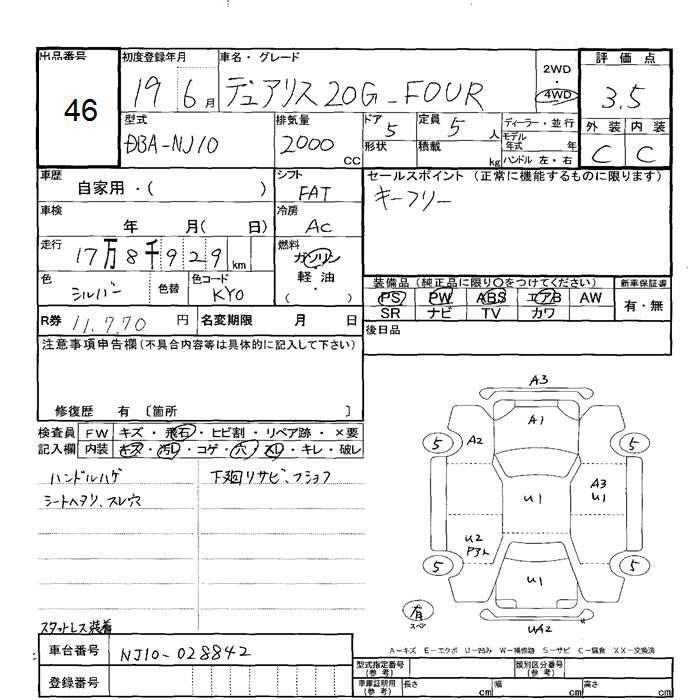 出品番号 初度登録年月 車名・グレード 評価点
46 19 6月 デュアリス 20G-FOUR 2WD 4WD 3.5
型式 排気量 ドア 5 定員 5人 ディーラー・並行 外装 内装
DBA-NJ10 2000 CC 形状 積載 kg モデル年式 年 C C
ハンドル 左・右
車歴 自家用・( ) シフト FAT セールスポイント (正常に機能するものに限ります)
車検 年 月( 日) 冷房 AC キーフリー
走行 17万8千929km 燃料 ガソリン 軽油 ( )
色 シルバー 色替 色コード KY0 装備品 (純正品に限り○をつけてください) 新車保証書
PS PW ABS エアB AW 有・無
SR ナビ TV カワ
R券 11,770円 名変期限 月 日 後日品
注意事項申告欄(不具合内容等は具体的に記入して下さい)
修復歴 有 〔箇所 〕
検査員 FW キズ・飛石・ヒビ割・リペア跡・×要
記入欄 内装 キズ・汚レ・コゲ・穴・スレ・キレ・破レ
ハンドルハゲ 下廻リサビ、フショク
シートヘタリ、スレ穴
A3
A1
5 A2 5
U1 A3 U1
U2
5 U1 5
有
スペア UA2
スタットレス装着
A-キズ E-エクボ U-凹み W-補修跡 S-サビ C-腐食 XX-交換済
車台番号 NJ10-028842
登録番号
型式指定番号 (参考) 類別区分番号 (参考)
車庫証明用 (参考) 長さ cm 幅 cm 高さ cm